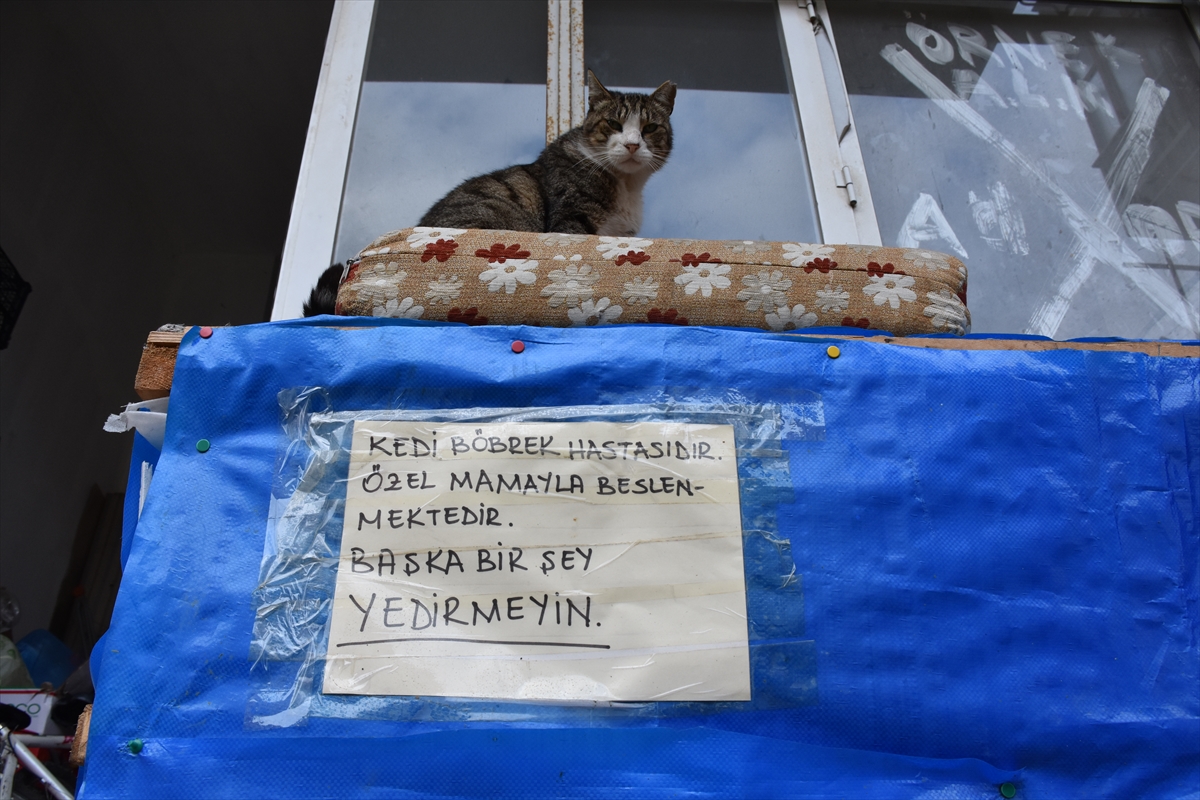 ÖRNEK
KEDİ BÖBREK HASTASIDIR.
ÖZEL MAMAYLA BESLEN-
MEKTEDİR.
BAŞKA BİR ŞEY
YEDİRMEYİN.